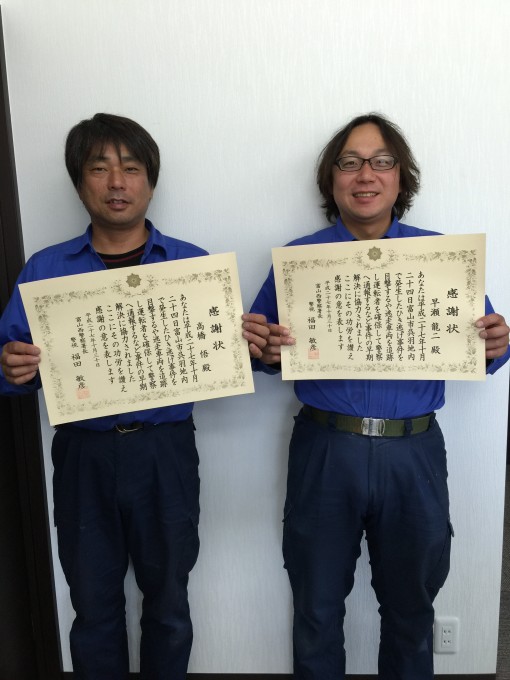 感謝状
高橋 悟 殿
あなたは平成二十七年十月
二十四日富山市呉羽地内
で発生したひき逃げ事件を
目撃するや逃走車両を追跡
し運転者を確保して警察
へ通報するなど事件の早期
解決に協力されました
ここにその功労を讃え
感謝の意を表します
平成二十七年十月三十日
富山西警察署長
警視 福田 敏彦
感謝状
早瀬 龍二 殿
あなたは平成二十七年十月
二十四日富山市呉羽地内
で発生したひき逃げ事件を
目撃するや逃走車両を追跡
し運転者を確保して警察
へ通報するなど事件の早期
解決に協力されました
ここにその功労を讃え
感謝の意を表します
平成二十七年十月三十日
富山西警察署長
警視 福田 敏彦